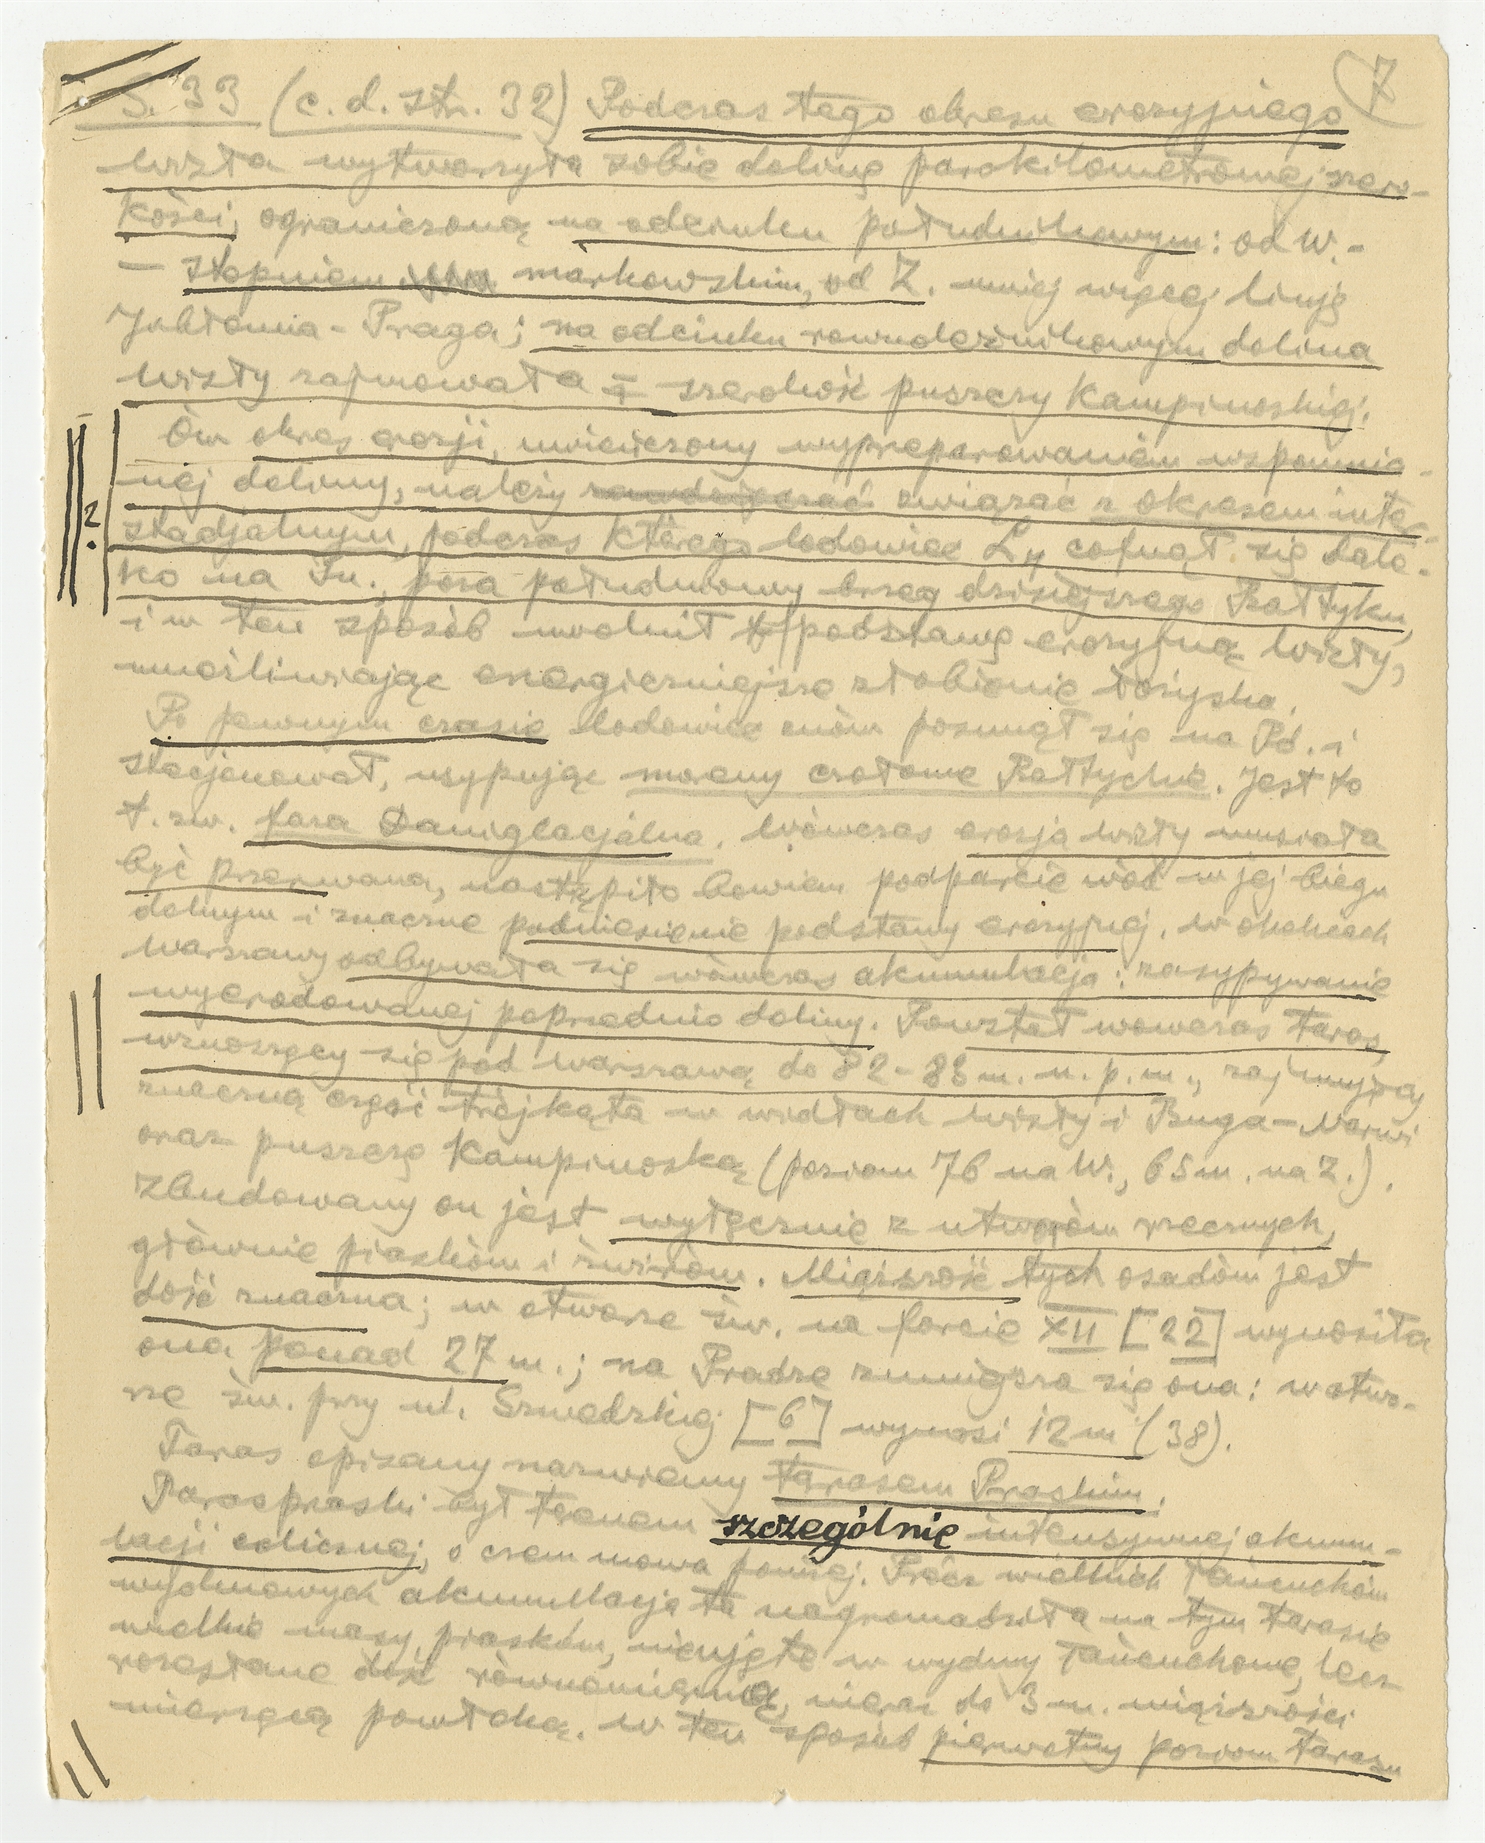 7
S. 33 (c. d. str. 32) Podczas tego okresu erozyjnego
Wisła wytworzyła sobie dolinę parokilometrowej szero-
kości, ograniczoną na odcinku południkowym: od W. -
- stopniem markowskim, od Z. mniej więcej linją
Jabłonna - Praga; na odcinku równoleżnikowym dolina
Wisły zajmowała ± szerokość puszczy Kampinoskiej.
Ów okres erozji, uwieńczony wypreparowaniem wspomnia-
nej doliny, należy związać z okresem inter-
stadjalnym, podczas którego lodowiec L4 cofnął się dale-
ko na Pn., poza południowy brzeg dzisiejszego Bałtyku,
i w ten sposób uwolnił podstawę erozyjną Wisły,
umożliwiając energiczniejsze żłobienie łożyska.
Po pewnym czasie lodowiec znów posunął się na Pd. i
stacjonował, usypując moreny czołowe Bałtyckie. Jest to
t. zw. faza Daniglacjalna. Wówczas erozja Wisły musiała
być przerwana, nastąpiło bowiem podparcie wód w jej biegu
dolnym i znaczne podniesienie podstawy erozyjnej. W okolicach
Warszawy odbywała się wówczas akumulacja: zasypywanie
wyerodowanej poprzednio doliny. Powstał wówczas taras,
wznoszący się pod Warszawą do 82-83 m. n. p. m., zajmujący
znaczną część trójkąta w widłach Wisły i Buga-Narwi
oraz puszczę Kampinoską (poziom 76 na W., 65 m. na Z.).
Zbudowany on jest wyłącznie z utworów rzecznych,
głównie piasków i żwirów. Miąższość tych osadów jest
dość znaczna; w otworze św. na forcie XII [22] wynosiła
ona ponad 27 m.; na Pradze zmniejsza się ona: w otwo-
rze św. przy ul. Szwedzkiej [6] wynosi 12 m (38).
Taras opisany nazwiemy tarasem Praskim.
Taras praski był terenem szczególnie intensywnej akumu-
lacji eolicznej, o czem mowa poniżej. Prócz wielkich łańcuchów
wydmowych akumulacja ta nagromadziła na tym tarasie
wielkie masy piasków, nieujęte w wydmy łańcuchowe, lecz
rozesłane dość równomierną, nieraz do 3 m. miąższości
mierzącą powłoką. W ten sposób pierwotny poziom tarasu